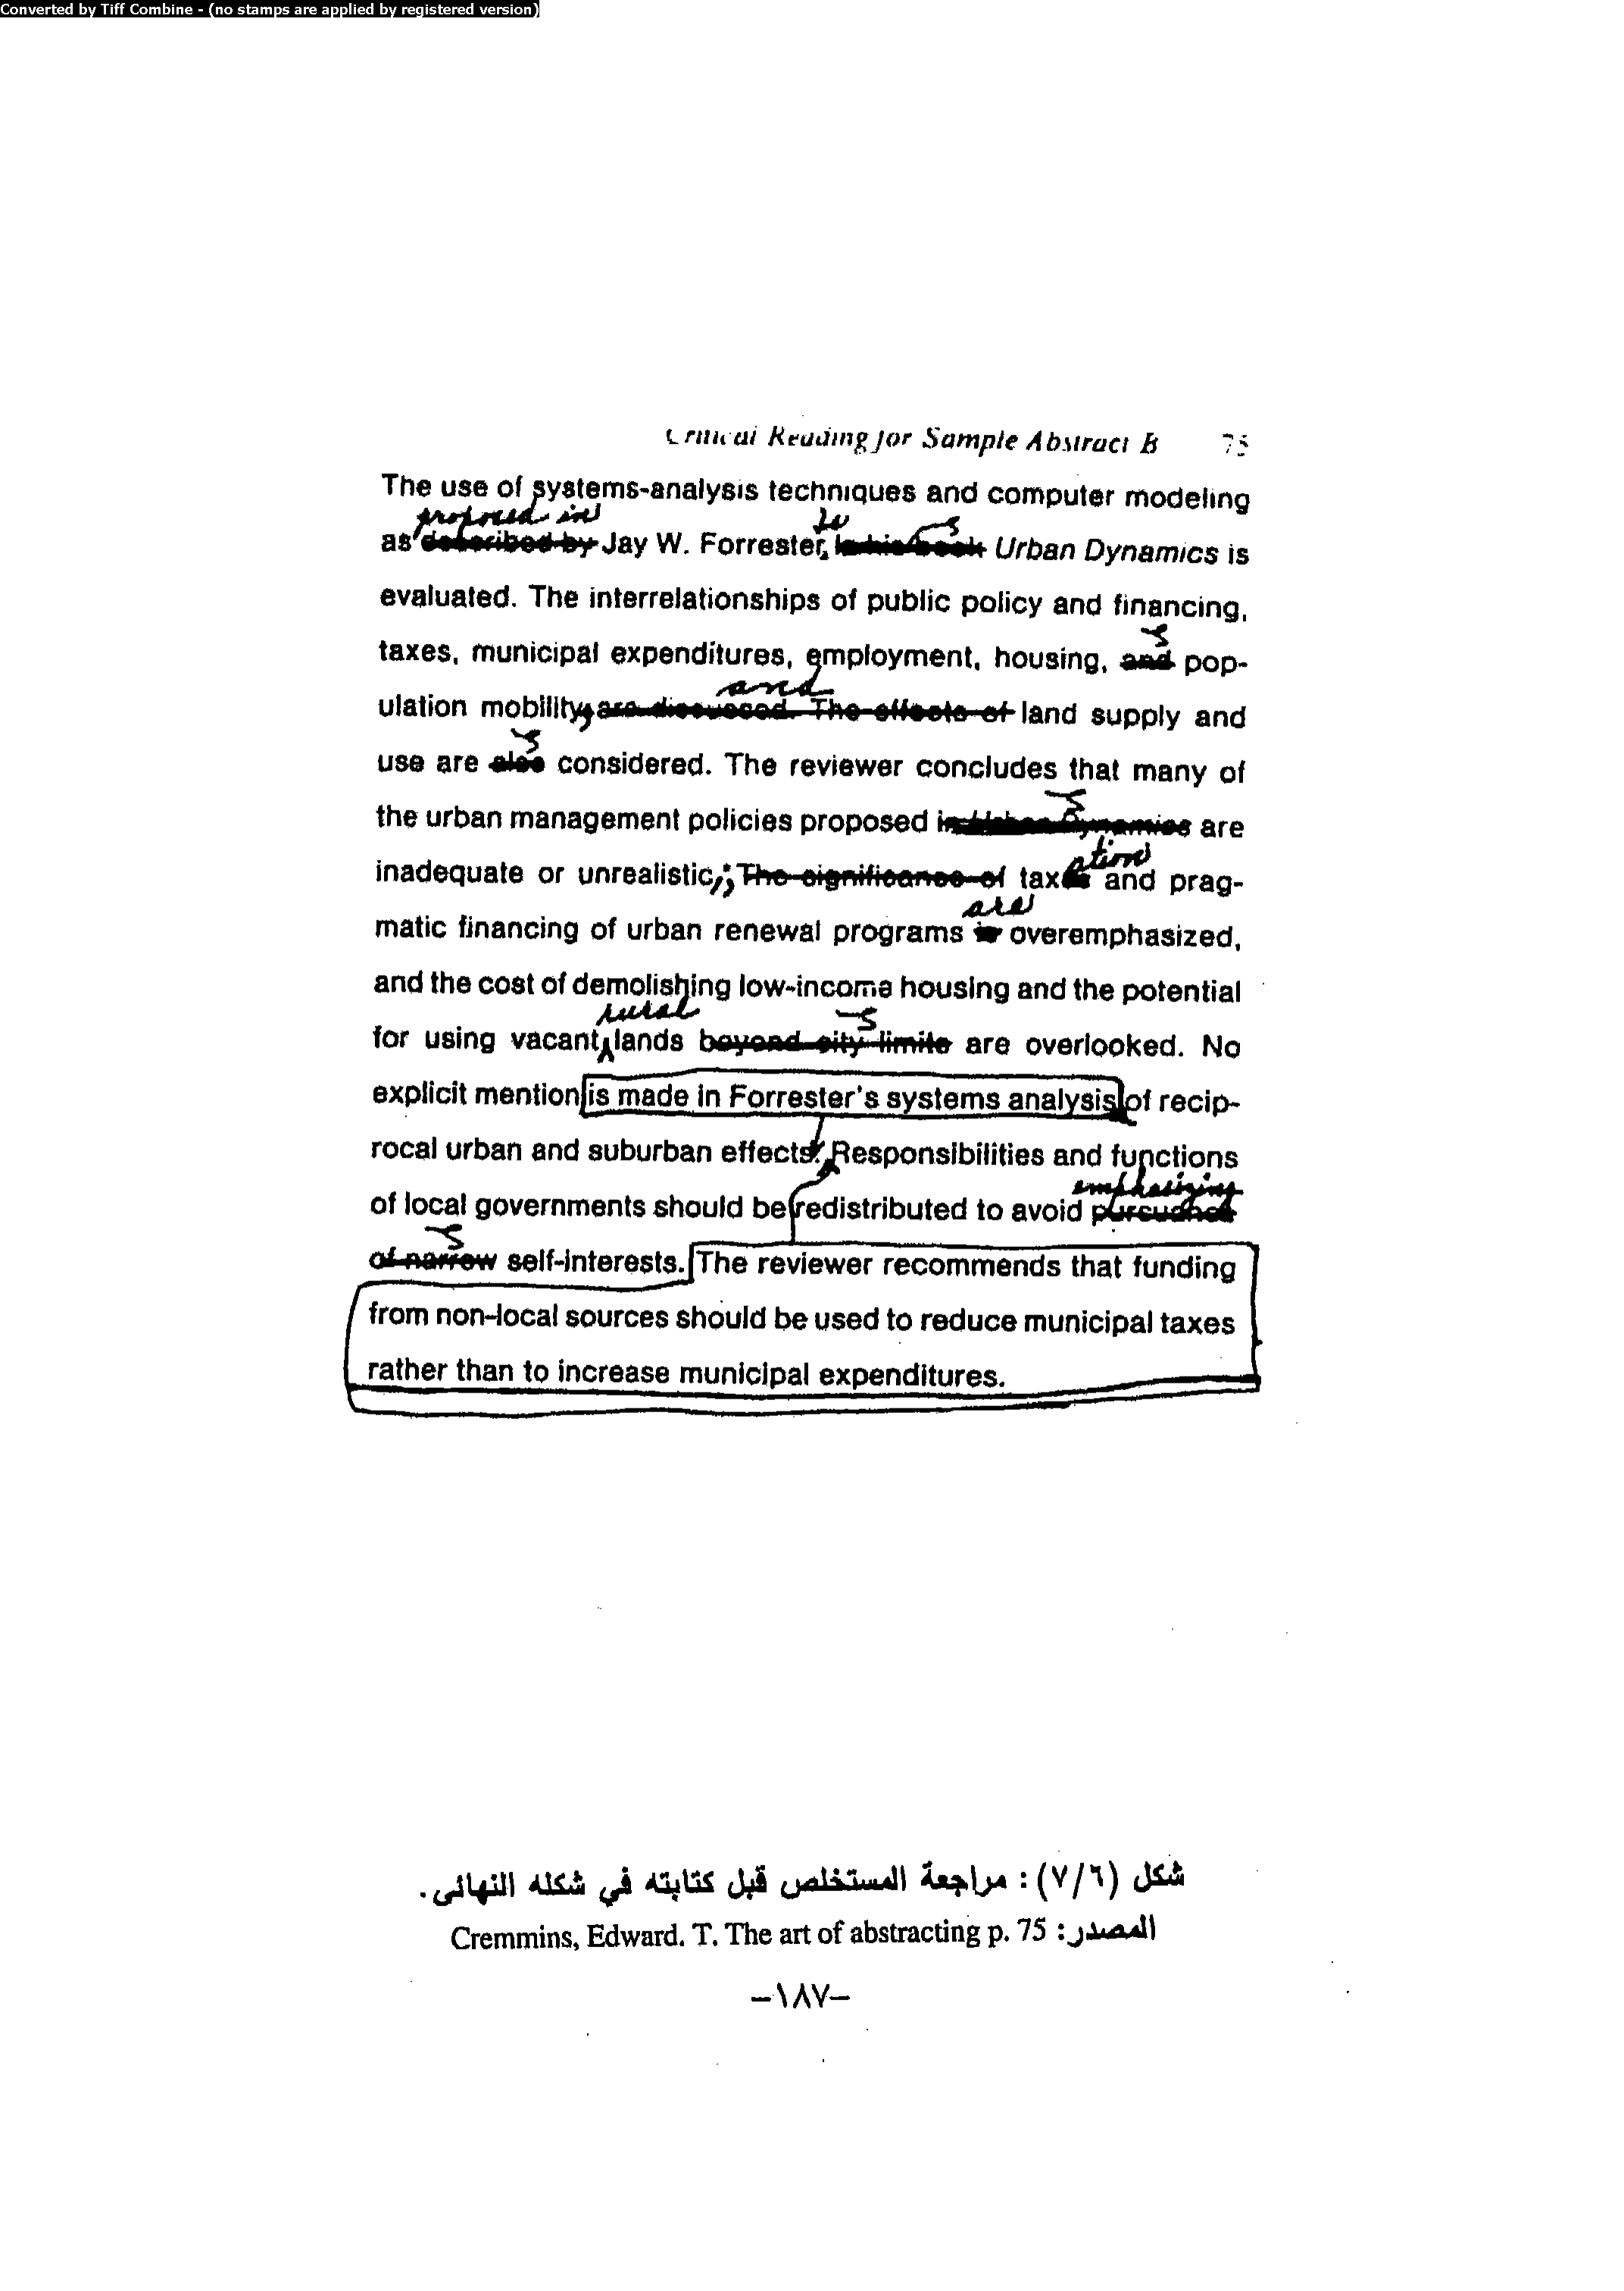 Converted by Tiff Combine - (no stamps are applied by registered version)
Critical Reading for Sample Abstract B 75
The use of systems-analysis techniques and computer modeling
proposed in
as described by Jay W. Forrester, in his book Urban Dynamics is
evaluated. The interrelationships of public policy and financing,
taxes, municipal expenditures, employment, housing, and pop-
and
ulation mobility, are discussed. The effects of land supply and
use are also considered. The reviewer concludes that many of
the urban management policies proposed in Urban Dynamics are
ation
inadequate or unrealistic; The significance of taxes and prag-
are
matic financing of urban renewal programs is overemphasized,
and the cost of demolishing low-income housing and the potential
rural
for using vacant lands beyond city limits are overlooked. No
explicit mention is made in Forrester's systems analysis of recip-
rocal urban and suburban effects. Responsibilities and functions
emphasizing
of local governments should be redistributed to avoid
of narrow self-interests. The reviewer recommends that funding
from non-local sources should be used to reduce municipal taxes
rather than to increase municipal expenditures.
شكل (٧/٦) : مراجعة المستخلص قبل كتابته في شكله النهائى .
المصدر: Cremmins, Edward. T. The art of abstracting p. 75
–١٨٧–